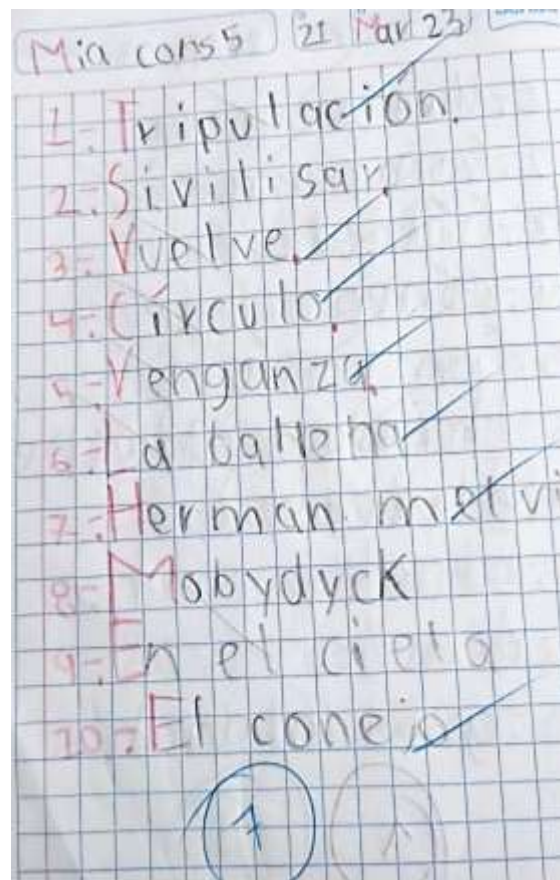 Mia cons 5 21 Mar 23
1-Tripulación.
2-Sivilisar.
3-Vuelve.
4-Círculo.
5-Venganza.
6-La ballena
7-Herman melvi
8-Mobydyck
9-En el cielo
10-El conejo
7